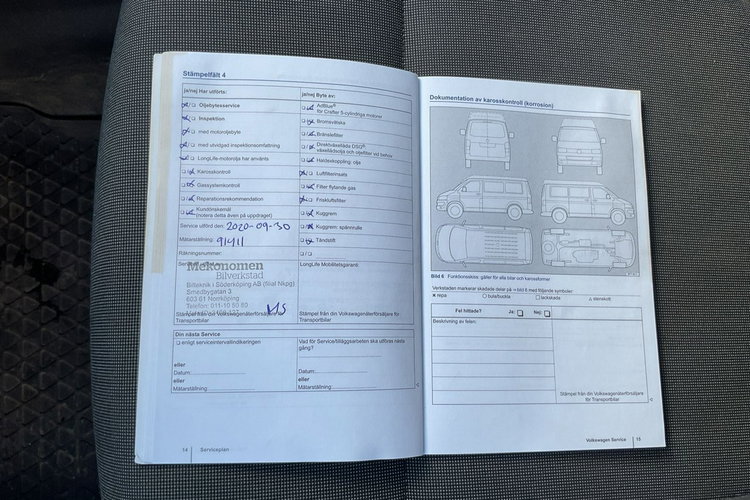 Stämpelfält 4
ja/nej Har utförts:
Oljebytesservice
Inspektion
med motoroljebyte
med utvidgad inspektionsomfattning
LongLife-motorolja har använts
Karosskontroll
Gassystemkontroll
Reparationsrekommendation
Kundönskemål
(notera detta även på uppdraget)
Service utförd den: 2020-09-30
Mätarställning: 91411
Räkningsnummer:
Mekonomen
Bilverkstad
Bilteknik i Söderköping AB (filial Nkpg)
Smedbygatan 3
603 61 Norrköping
Telefon: 011-10 50 80
Stämpel från din Volkswagenåterförsäljare för
Transportbilar
ja/nej Byte av:
AdBlue®
för Crafter 5-cylindriga motorer
Bromsvätska
Bränslefilter
Direktväxellåda DSG®:
växellådsolja och oljefilter vid behov
Haldexkoppling: olja
Luftfilterinsats
Filter flytande gas
Friskluftsfilter
Kuggrem
Kuggrem: spännrulle
Tändstift
LongLife Mobilitetsgaranti:
Stämpel från din Volkswagenåterförsäljare för
Transportbilar
Din nästa Service
enligt serviceintervallindikeringen
eller
Datum:
eller
Mätarställning:
Vad för Service/tilläggsarbeten ska utföras nästa
gång?
Datum:
eller
Mätarställning:
14 Serviceplan
Dokumentation av karosskontroll (korrosion)
Bild 6 Funktionsskiss: gäller för alla bilar och karossformer
Verkstaden markerar skadade delar på ⇒ bild 6 med följande symboler:
× repa ○ bula/buckla □ lackskada △ stenskott
Fel hittade? Ja: Nej:
Beskrivning av felen:
Stämpel från din Volkswagenåterförsäljare
för Transportbilar
Volkswagen Service 15